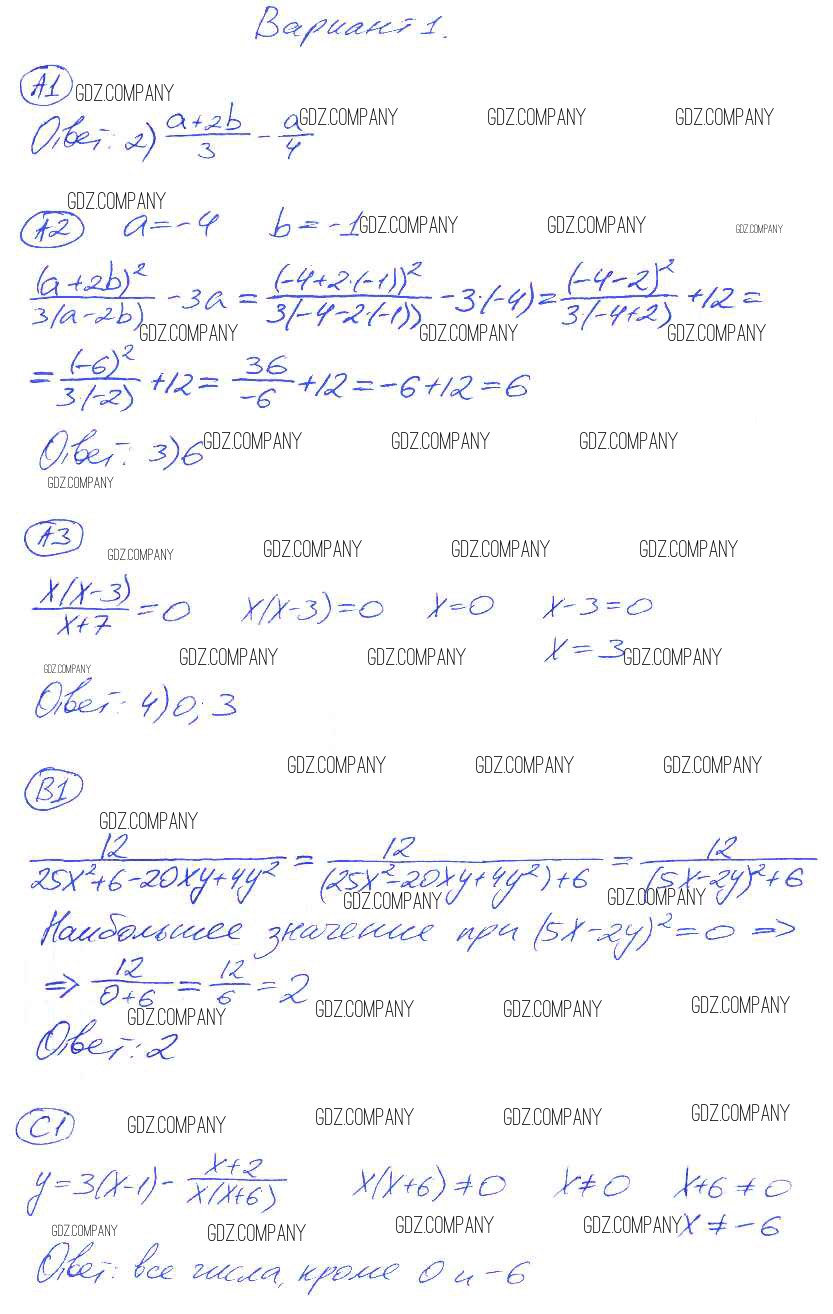 Вариант 1.
А1 GDZ.COMPANY
Ответ: 2) (a+2b)/3 - a/4 GDZ.COMPANY GDZ.COMPANY GDZ.COMPANY
GDZ.COMPANY
А2 a=-4 b=-1 GDZ.COMPANY GDZ.COMPANY GDZ.COMPANY
(a+2b)²/3(a-2b) - 3a = (-4+2·(-1))²/3(-4-2·(-1)) - 3·(-4) = (-4-2)²/3·(-4+2) + 12 =
GDZ.COMPANY GDZ.COMPANY GDZ.COMPANY
= (-6)²/3·(-2) + 12 = 36/-6 + 12 = -6+12 = 6
Ответ: 3) 6 GDZ.COMPANY GDZ.COMPANY GDZ.COMPANY
GDZ.COMPANY
А3 GDZ.COMPANY GDZ.COMPANY GDZ.COMPANY GDZ.COMPANY
x(x-3)/x+7 = 0 x(x-3)=0 x=0 x-3=0
GDZ.COMPANY GDZ.COMPANY GDZ.COMPANY x=3 GDZ.COMPANY
Ответ: 4) 0; 3
GDZ.COMPANY GDZ.COMPANY GDZ.COMPANY
В1
GDZ.COMPANY
12/25x²+6-20xy+4y² = 12/(25x²-20xy+4y²)+6 = 12/(5x-2y)²+6
GDZ.COMPANY GDZ.COMPANY
Наибольшее значение при (5x-2y)²=0 =>
=> 12/0+6 = 12/6 = 2
GDZ.COMPANY GDZ.COMPANY GDZ.COMPANY GDZ.COMPANY
Ответ: 2
С1 GDZ.COMPANY GDZ.COMPANY GDZ.COMPANY GDZ.COMPANY
y=3(x-1) - x+2/x(x+6) x(x+6)≠0 x≠0 x+6≠0
GDZ.COMPANY GDZ.COMPANY GDZ.COMPANY GDZ.COMPANY x≠-6
Ответ: все числа, кроме 0 и -6